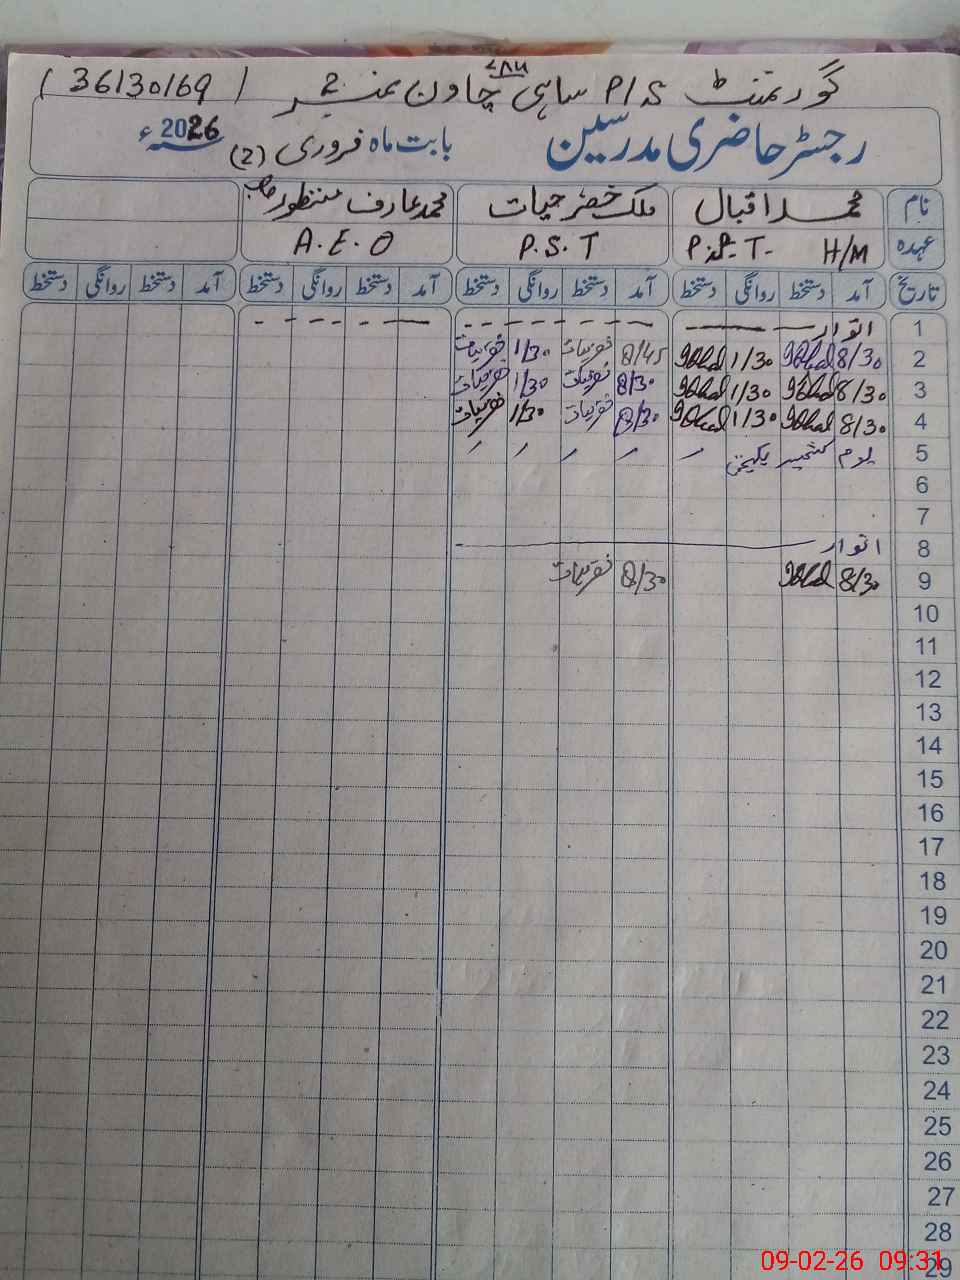 گورنمنٹ P/S ساہی چاون نمبر 2 (36130169)
۷۸۶
رجسٹر حاضری مدرسین بابت ماہ فروری (2) سنہ 2026ء
نام محمد اقبال ملک خضر حیات محمد عارف منظور صاحب
عہدہ H/M P.S.T A.E.O
تاریخ آمد دستخط روانگی دستخط آمد دستخط روانگی دستخط آمد دستخط روانگی دستخط آمد دستخط روانگی دستخط
1 اتوار
2 8/30 Iqbal 1/30 Iqbal 8/45 خضرحیات 1/30 خضرحیات
3 8/30 Iqbal 1/30 Iqbal 8/30 خضرحیات 1/30 خضرحیات
4 8/30 Iqbal 1/30 Iqbal 8/30 خضرحیات 1/30 خضرحیات
5 یوم کشمیر یکجہتی
6
7
8 اتوار
9 8/30 Iqbal 8/30 خضرحیات
10
11
12
13
14
15
16
17
18
19
20
21
22
23
24
25
26
27
28
29
09-02-26 09:31